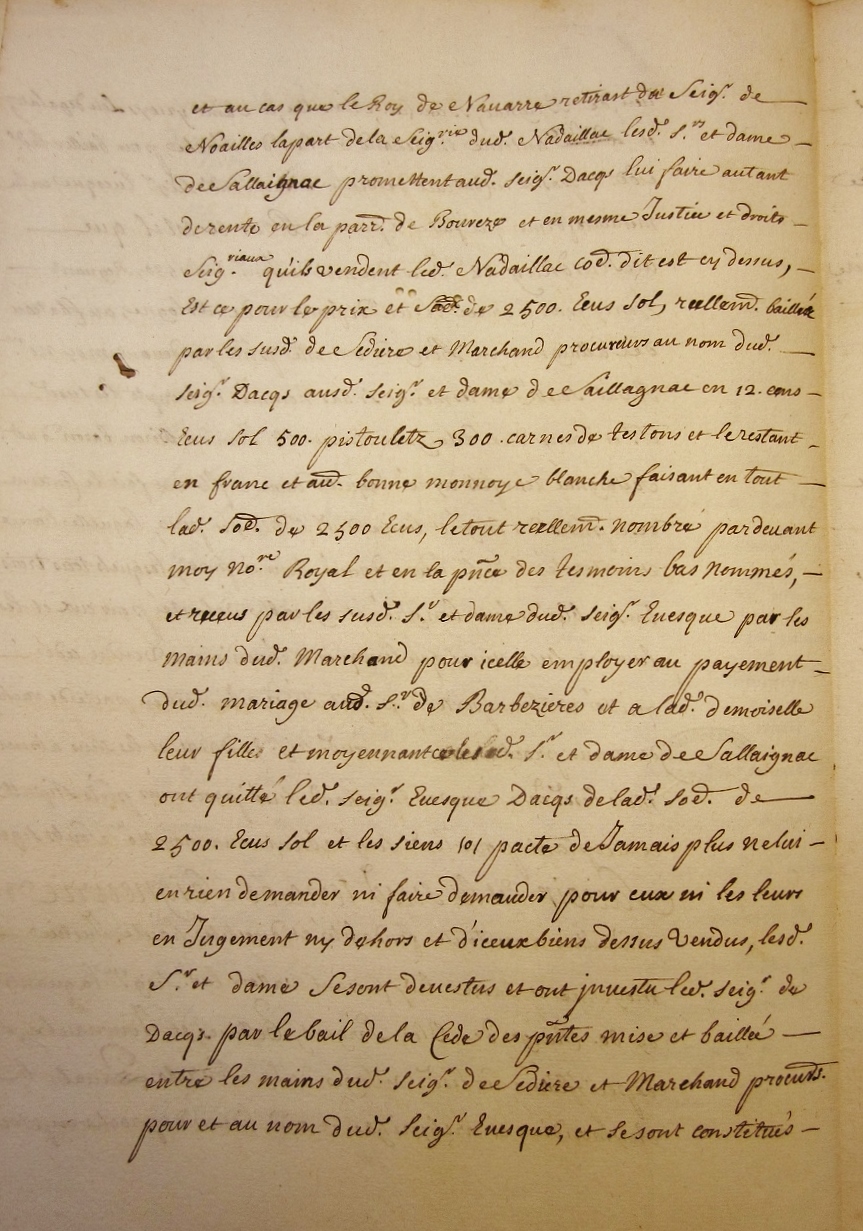 et au cas que le Roy de Navarre retirast du Seig.r de
Noailles la part de la Seig.rie dud. Nadaillac lesd. S.rs et dame
de Sallaignac promettent aud. seig.r Dacqs lui faire autant
de rente en la parr. de Boureze et en mesme Justice et droits
Seig.riaux qu'ils vendent led. Nadaillac cod. dit est cy dessus,
Est ce pour le prix et de 2500. Ecus sol, reellem.t baillée
par les susd. de Sediere et Marchand procureurs au nom dud.
seig.r Dacqs ausd. seig.r et dame de Saillagnac en 12. cens
Ecus sol 500. pistouletz 300. carnes de testons et le restant
en franc et au.t bonne monnoye blanche faisant en tout
lad. sod. de 2500 Ecus, le tout reellem.t nombré par devant
moy no.re Royal et en la pn̄ce des tesmoins bas nommés,
et receus par les susd. S.r et dame dud. seig.r Evesque par les
mains dud. Marchand pour icelle employer au payement
dud. mariage aud. S.r de Barbezieres et a lad. demoiselle
leur fille et moyennant ce lesd. S.r et dame de Sallaignac
ont quitté led. seig.r Evesque Dacqs de lad. sod. de
2500. Ecus sol et les siens pacte de Jamais plus ne lui
en rien demander ni faire demander pour eux ni les leurs
en Jugement ny dehors et d'iceux biens dessus vendus, lesd.
S.r et dame se sont devestus et ont investu led. seig.r de
Dacqs par le bail de la Cede des pn̄tes mise et baillée
entre les mains dud. seig.r de Sediere et Marchand procurs.
pour et au nom dud. seig.r Evesque, et se sont constitués